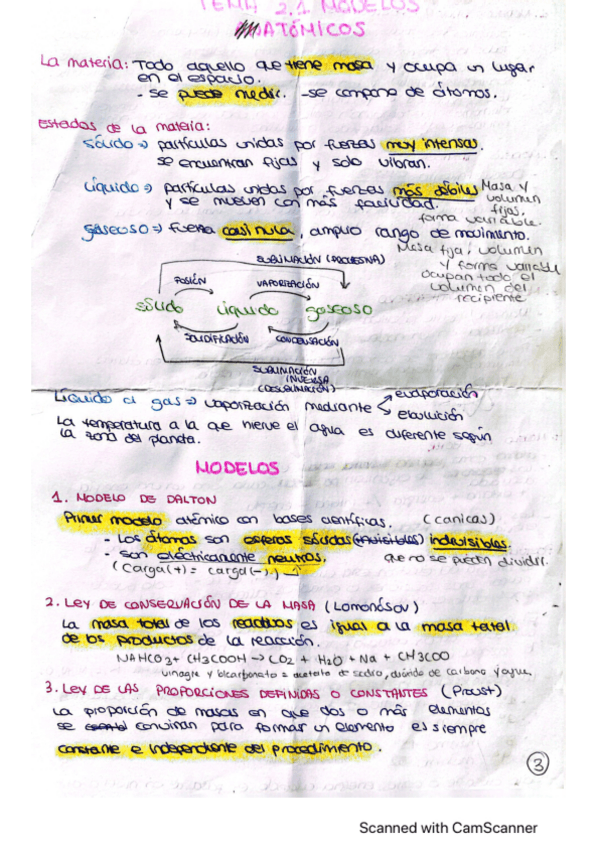 TEMA 2.1 MODELOS
ATÓMICOS
La materia: Todo aquello que tiene masa y ocupa un lugar
en el espacio.
- se puede medir. - se compone de átomos.
Estados de la materia:
sólido → partículas unidas por fuerzas muy intensas.
se encuentran fijas y solo vibran.
líquido → partículas unidas por fuerzas más débiles
y se mueven con más facilidad.
Masa y
volumen
fijas,
forma variable.
gaseoso → fuerza casi nula, amplio rango de movimiento.
Masa fija, volumen
y forma variable
ocupan todo el
volumen del
recipiente
SUBLIMACIÓN (PROGRESIVA)
FUSIÓN VAPORIZACIÓN
sólido líquido gaseoso
SOLIDIFICACIÓN CONDENSACIÓN
SUBLIMACIÓN
INVERSA
(DESUBLIMACIÓN)
Líquido a gas → vaporización mediante evaporación
ebullición
La temperatura a la que hierve el agua es diferente según
la zona del planeta.
MODELOS
1. MODELO DE DALTON
Primer modelo atómico con bases científicas. (canicas)
- Los átomos son esferas sólidas (invisibles) indivisibles.
- son eléctricamente neutros. que no se pueden dividir.
(carga(+) = carga(-))
2. LEY DE CONSERVACIÓN DE LA MASA (Lomonósov)
La masa total de los reactivos es igual a la masa total
de los productos de la reacción.
NAHCO3 + CH3COOH → CO2 + H2O + Na + CH3COO
vinagre y bicarbonato = acetato de sodio, dióxido de carbono y agua.
3. LEY DE LAS PROPORCIONES DEFINIDAS O CONSTANTES (Proust)
La proporción de masas en que dos o más elementos
se convinan para formar un elemento es siempre
constante e independiente del procedimiento.
3
Scanned with CamScanner